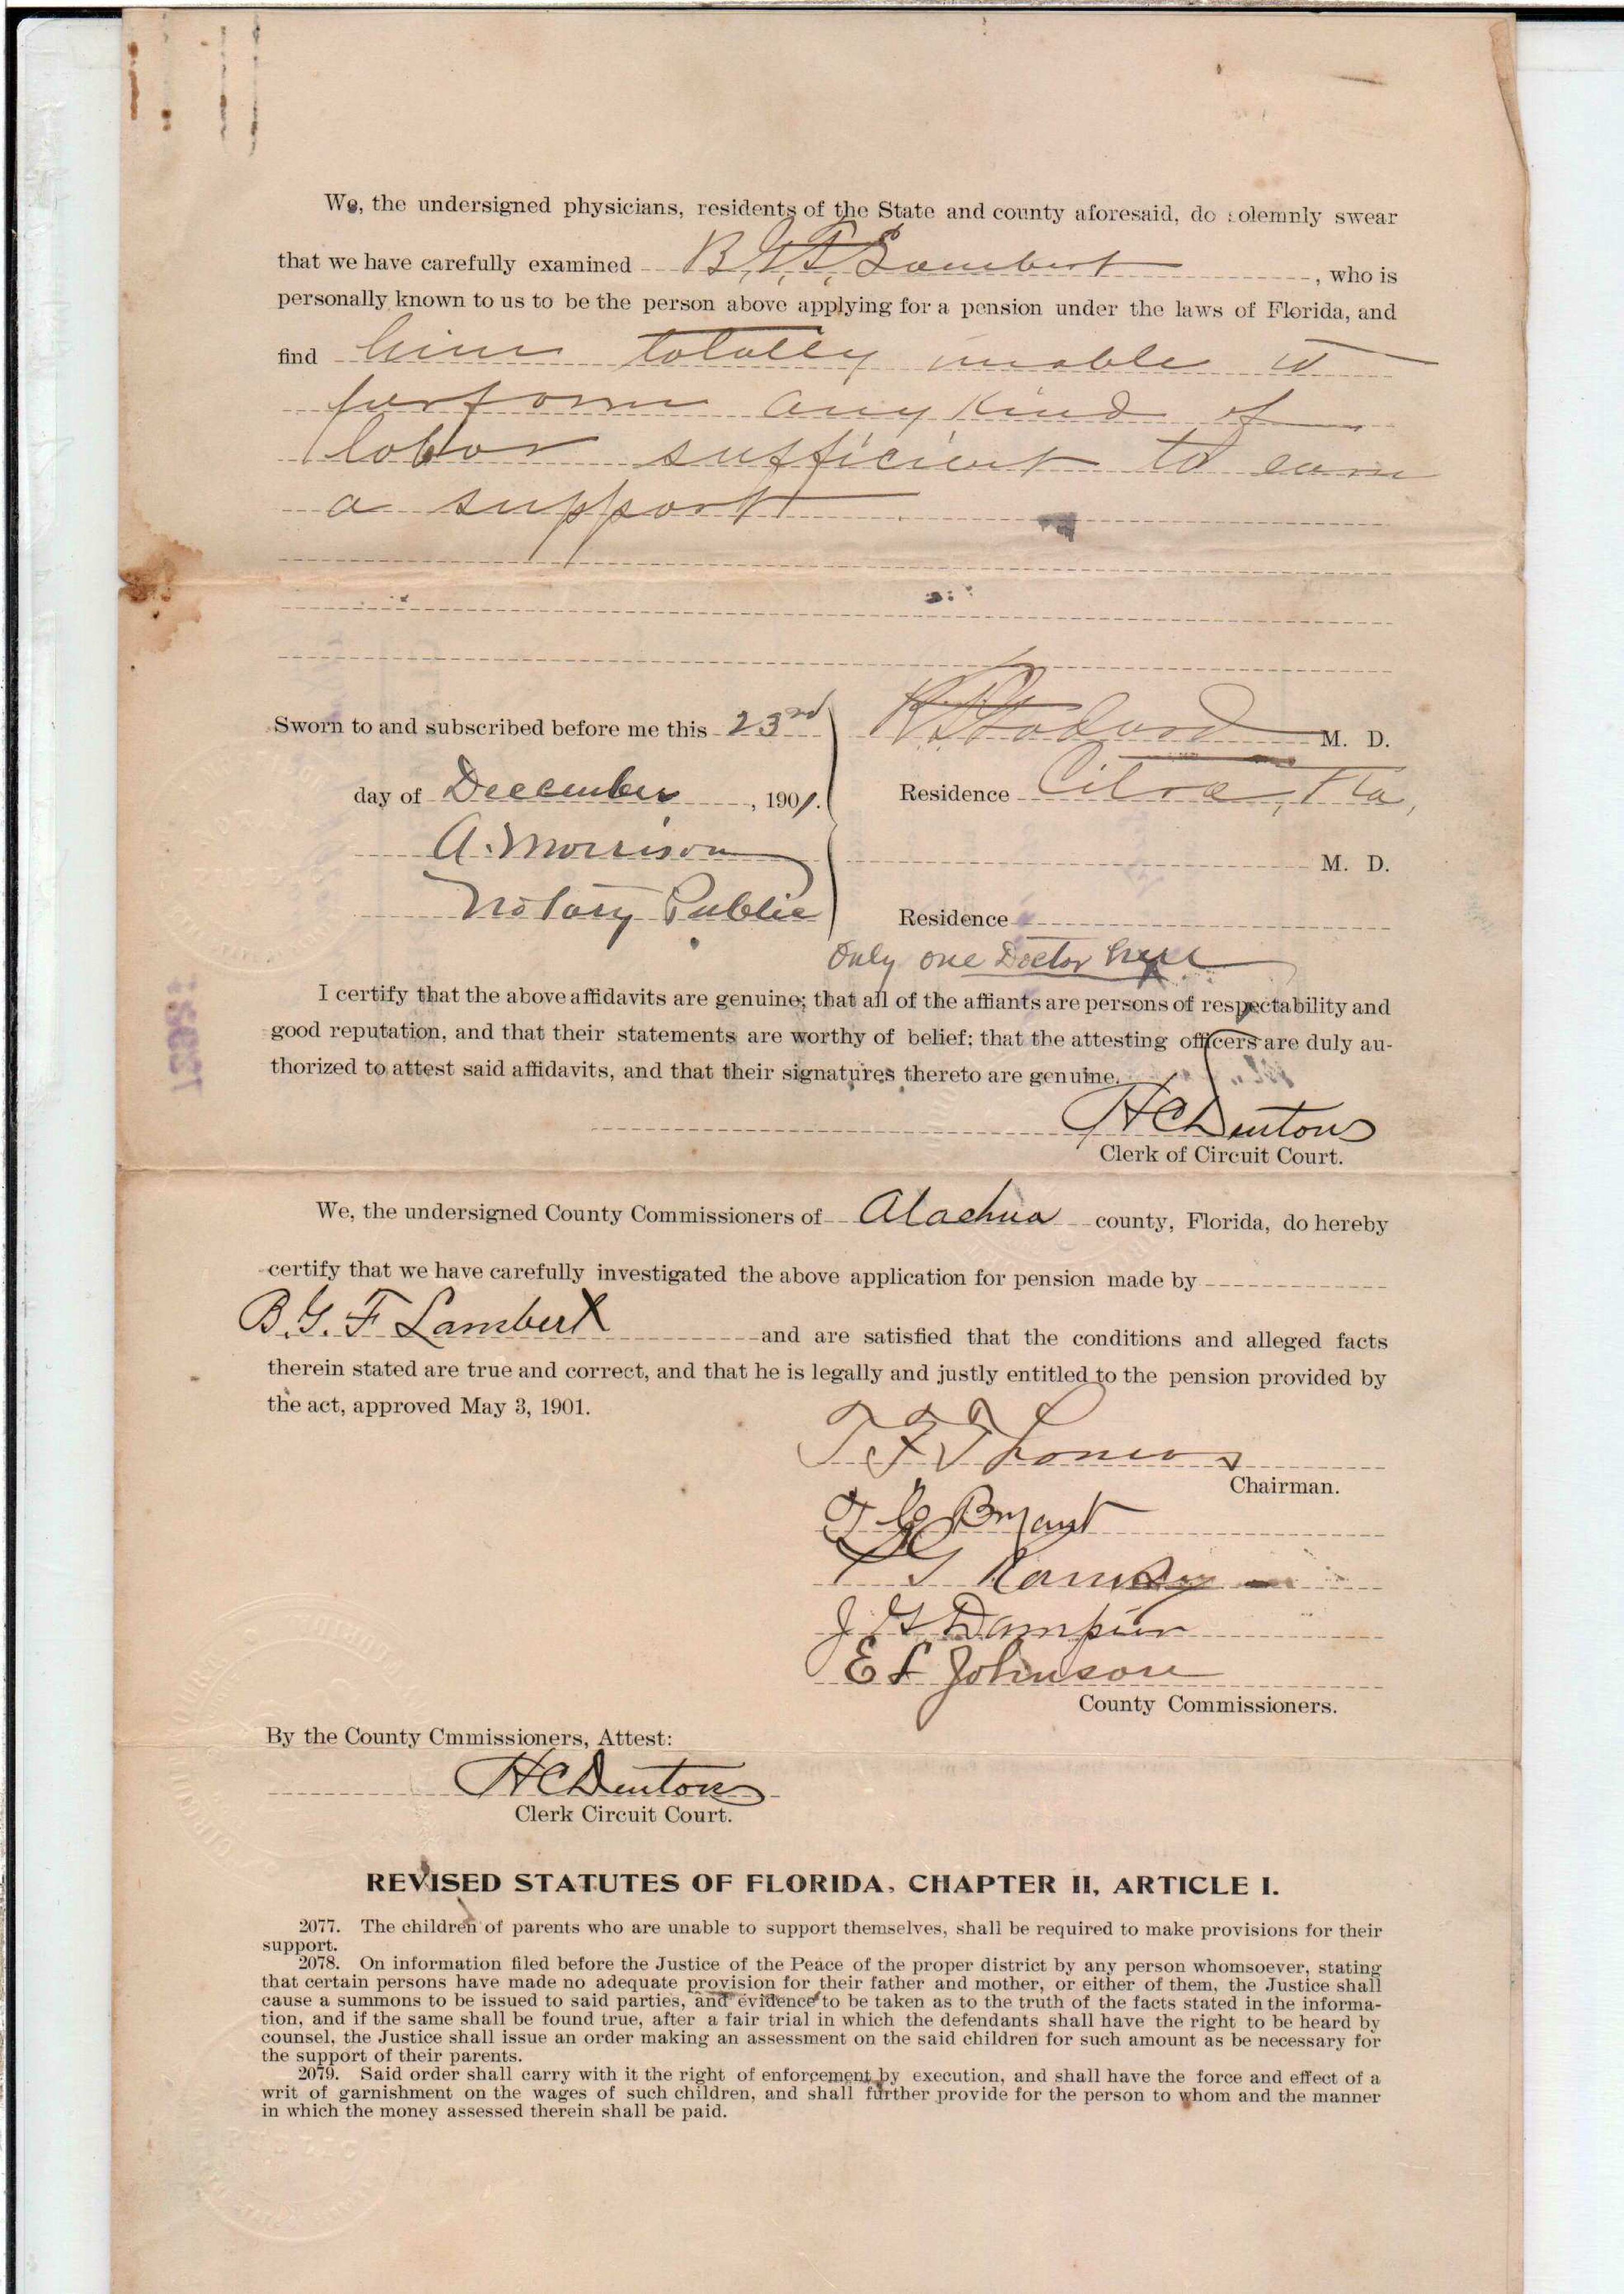 We, the undersigned physicians, residents of the State and county aforesaid, do solemnly swear
that we have carefully examined B. G. F. Lambert, who is
personally known to us to be the person above applying for a pension under the laws of Florida, and
find him totally unable to
perform any kind of
labor sufficient to earn
a support
Sworn to and subscribed before me this 23rd
M. D.
day of December, 1901.
Residence Citra, Fla,
A. Morrison
M. D.
Notary Public
Residence
Only one Doctor here
I certify that the above affidavits are genuine; that all of the affiants are persons of respectability and
good reputation, and that their statements are worthy of belief; that the attesting officers are duly au-
thorized to attest said affidavits, and that their signatures thereto are genuine.
H C Denton
Clerk of Circuit Court.
We, the undersigned County Commissioners of Alachua county, Florida, do hereby
certify that we have carefully investigated the above application for pension made by
B. G. F Lambert and are satisfied that the conditions and alleged facts
therein stated are true and correct, and that he is legally and justly entitled to the pension provided by
the act, approved May 3, 1901.
T F Thomas
Chairman.
Bryant
G Ramsey
J G Dampier
E L Johnson
County Commissioners.
By the County Cmmissioners, Attest:
H C Denton
Clerk Circuit Court.
REVISED STATUTES OF FLORIDA, CHAPTER II, ARTICLE I.
2077. The children of parents who are unable to support themselves, shall be required to make provisions for their
support.
2078. On information filed before the Justice of the Peace of the proper district by any person whomsoever, stating
that certain persons have made no adequate provision for their father and mother, or either of them, the Justice shall
cause a summons to be issued to said parties, and evidence to be taken as to the truth of the facts stated in the informa-
tion, and if the same shall be found true, after a fair trial in which the defendants shall have the right to be heard by
counsel, the Justice shall issue an order making an assessment on the said children for such amount as be necessary for
the support of their parents.
2079. Said order shall carry with it the right of enforcement by execution, and shall have the force and effect of a
writ of garnishment on the wages of such children, and shall further provide for the person to whom and the manner
in which the money assessed therein shall be paid.